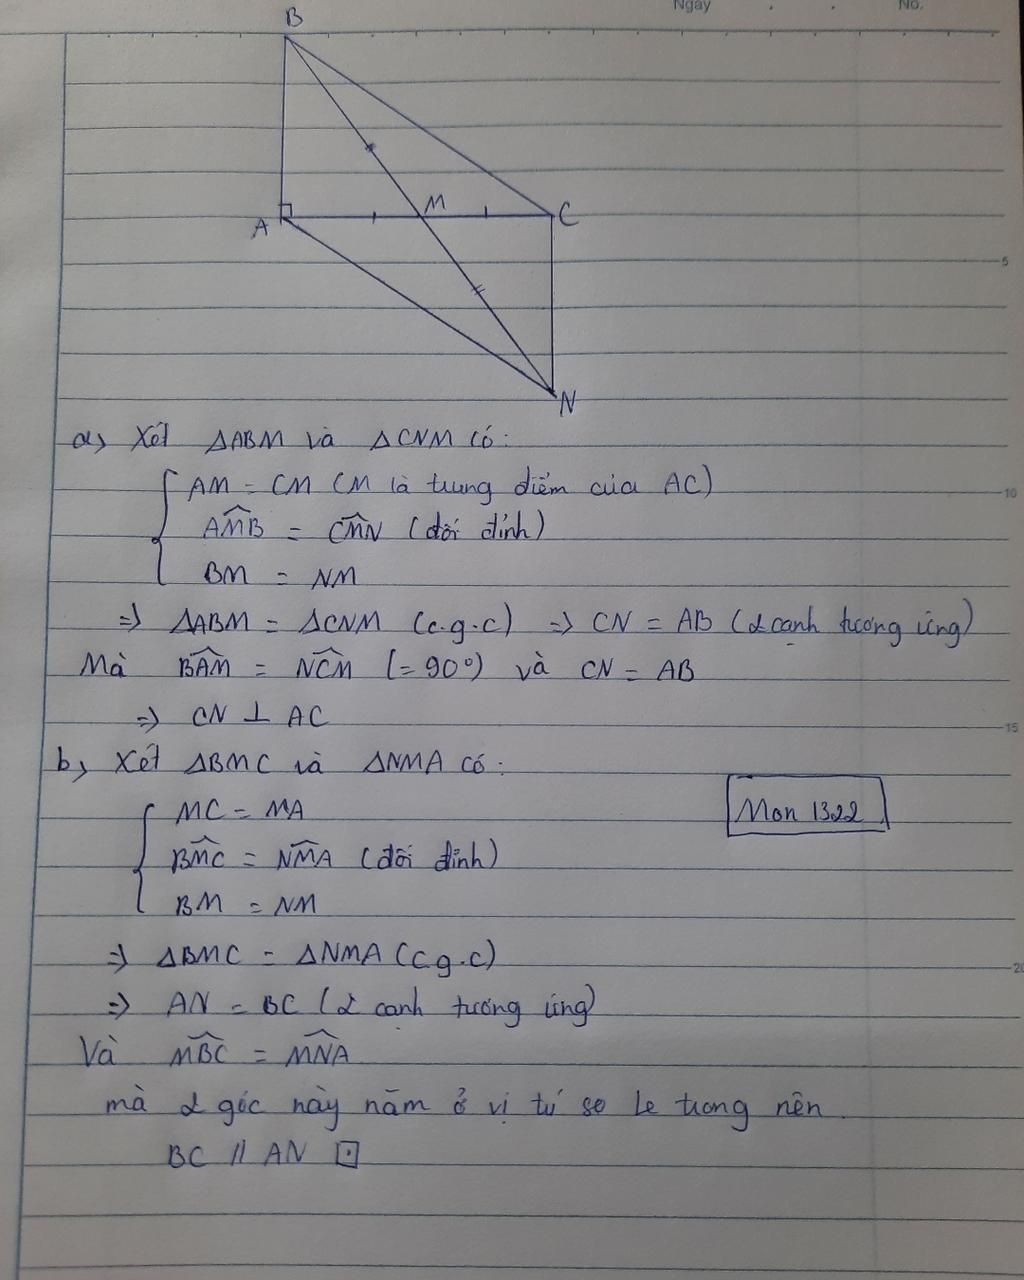 Ngày . . No.
B
M
A
C
N
5
a) Xét ΔABM và ΔCNM có:
AM = CM (M là trung điểm của AC)
10
AMB = CMN (đối đỉnh)
BM = NM
=> ΔABM = ΔCNM (c.g.c) => CN = AB (2 cạnh tương ứng)
Mà BAM = NCM (= 90°) và CN = AB
=> CN ⊥ AC
15
b) Xét ΔBMC và ΔNMA có:
MC = MA
Mon 1322
BMC = NMA (đối đỉnh)
BM = NM
=> ΔBMC = ΔNMA (c.g.c)
20
=> AN = BC (2 cạnh tương ứng)
Và MBC = MNA
mà 2 góc này nằm ở vị trí so le trong nên
BC // AN